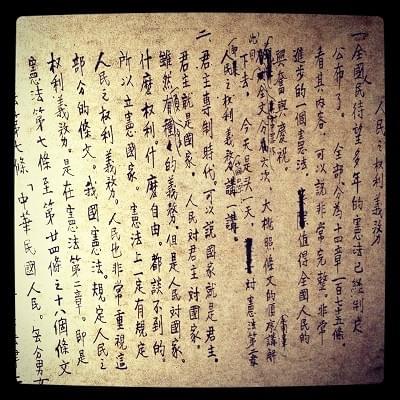 人民之權利義務
一、全國民待望多年的憲法已經制定
公布了。全部分為十四章一百七十五條。
看其內容、可以說非常完整。非常
進步的一個憲法。值得全國人民的
興奮與慶祝。
全文分六次、大概照條文的順序講解
下去、今天是头一天、對憲法第二章
人民之權利義務講一講。
二、君主專制時代、可以說國家就是君主。
君主就是國家。人民對君主對國家。
雖然有種々的義務。但是人民對國家。
什麼權利什麼自由。都談不到的
所以立憲國家。憲法上一定有規定
人民之權利義務。人民也非常重視這
部分的條文。我國憲法。規定人民之
權利義務。是在憲法第二章。即是
憲法第七條至第廿四條之十八個條文
第七條「中華民國人民。無分男女